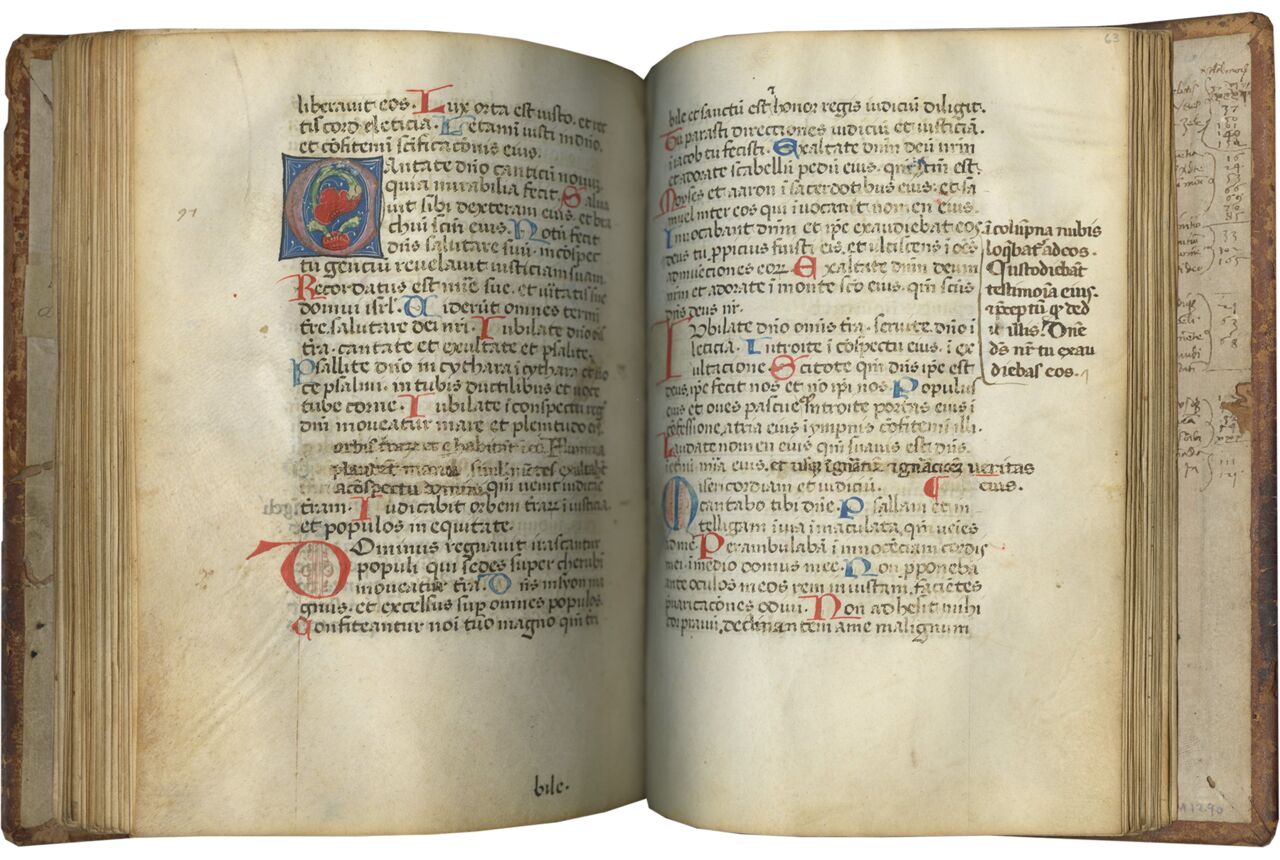 liberauit eos. Lux orta est iusto. et rec
tis corde leticia. Letamī iusti in dño.
et cōfitemī sc̄ificacōnis eius.
Cantate dño canticū nouū.
quia mirabilia fecit. Salua
uit sibi dexteram eius. et bra
chiū sc̄m eius. Notū fecit
dn̄s salutare suū. in cōspec
tu genciū reuelauit iusticiam suam.
Recordatus est mīe sue. et uītatis sue
domui isrl. Uiderūt omnes termī
tr̄e. salutare dei nr̄i. Iubilate dño ōis
tr̄a. cantate et exultate et psalite.
Psallite dño in cythara ī cythara et uo
ce psalmi. in tubis ductilibus et uoce
tube cornee. Iubilate ī conspectu reg
dn̄i moueatur mare et plenitudo eiꝰ
orbis trarꝝ et q habitāt ī eo. Flumina
plaudēt manu simul mōtes exultabūt
a cōspectu domini qm̄ uenit iudicare
tram. Iudicabit orbem trarꝝ ī iusticia
et populos in equitate.
Dominus regnauit irascantur
populi qui sedes super cherubī
moueatur tr̄a. Dn̄s in syon ma
gnus. et excelsus sup̄ omnes populos.
Confiteantur noī tuo magno qm̄ tr̄i
bile.
91
63
bile et sanctū est ⁊ honor regis iudiciū diligit.
Tu parasti directiones iudiciū et iusticiā.
ī iacob tu fecisti. Exaltate dn̄m deū nr̄m
et adorate scabellū pedū eius. qm̄ sc̄m est.
Moyses et aaron ī sacerdotibus eius. et sa
muel inter eos qui īuocant nomen eius.
Inuocabant dn̄m et ip̄e exaudiebat eos.
deus tu ꝓpicius fuisti eis. et ulciscens ī ōes
adinueciones eorꝝ. Exaltate dn̄m deum
nr̄m et adorate ī monte sc̄o eius. qm̄ sc̄us
dn̄s deus nr̄.
ī colūpna nubis
loq̄bat᷑ ad eos.
Custodiebāt
testimoīa eius.
⁊ p̄ceptū qď ded
it illis. Dn̄e
ds̄ nr̄ tu exau
diebas eos.
Iubilate dño omīs tr̄a. seruite dño ī
leticia. Introite ī cōspectu eius. ī ex
ultacione. Scitote qm̄ dn̄s ip̄e est
deus. ip̄e fecit nos et nō ip̄i nos. Populus
eius et oues pascue eiꝰ introite portas eius ī
cōfessione. atria eius ī ympnis cōfitemī illi.
Laudate nomen eius qm̄ suauis est dn̄s.
īetnū mīa eius. et usqꝫ ī gnāt̄m ⁊ gnācioēꝫ ueritas
eius.
Misericordiam et iudiciū.
cantabo tibi dñe. Psallam et in
telligam ī uia īmaculata. qn̄ ueies
ad me. Perambulabā ī innocēciam cordis
mei. ī medio domus mee. Non ꝓponebā
ante oculos meos rem iniustam. faciētes
p̄uaricacōnes odiui. Non adhesit mihi
cor prauū. declinantem a me malignum